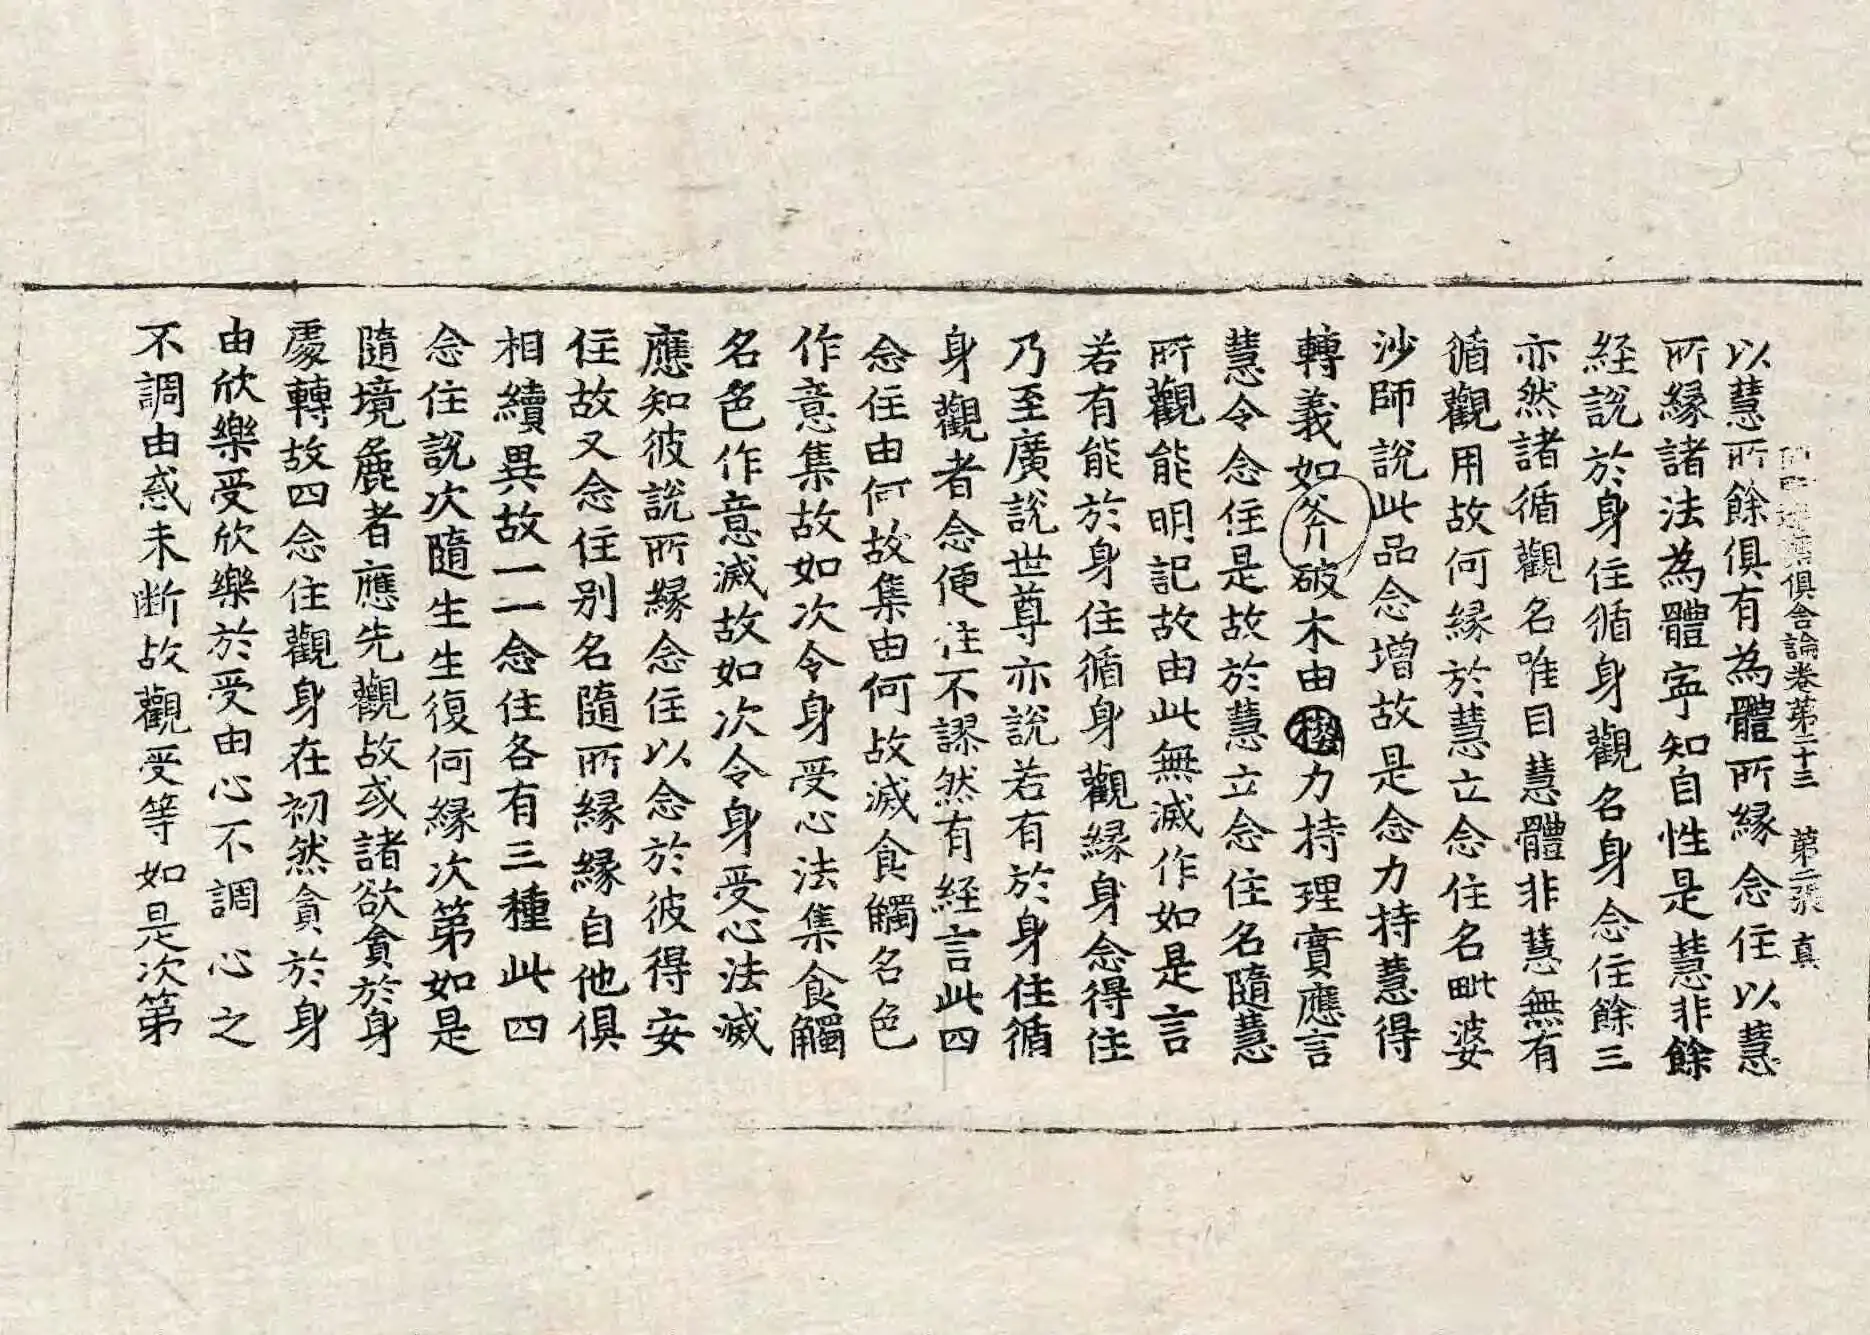 俱舍論卷第二十三 第二張 真
以慧所餘俱有為體所緣念住以慧
所緣諸法為體寧知自性是慧非餘
経說於身住循身觀名身念住餘三
亦然諸循觀名唯目慧體非慧無有
循觀用故何緣於慧立念住名毗婆
沙師說此品念增故是念力持慧得
轉義如斧破木由楔力持理實應言
慧令念住是故於慧立念住名隨慧
所觀能明記故由此無滅作如是言
若有能於身住循身觀緣身念得住
乃至廣說世尊亦說若有於身住循
身觀者念便住不謬然有経言此四
念住由何故集由何故滅食觸名色
作意集故如次令身受心法集食觸
名色作意滅故如次令身受心法滅
應知彼說所緣念住以念於彼得安
住故又念住別名隨所緣緣自他俱
相續異故一一念住各有三種此四
念住說次隨生生復何緣次第如是
隨境麁者應先觀故或諸欲貪於身
處轉故四念住觀身在初然貪於身
由欣樂受欣樂於受由心不調心之
不調由惑未断故觀受等如是次第